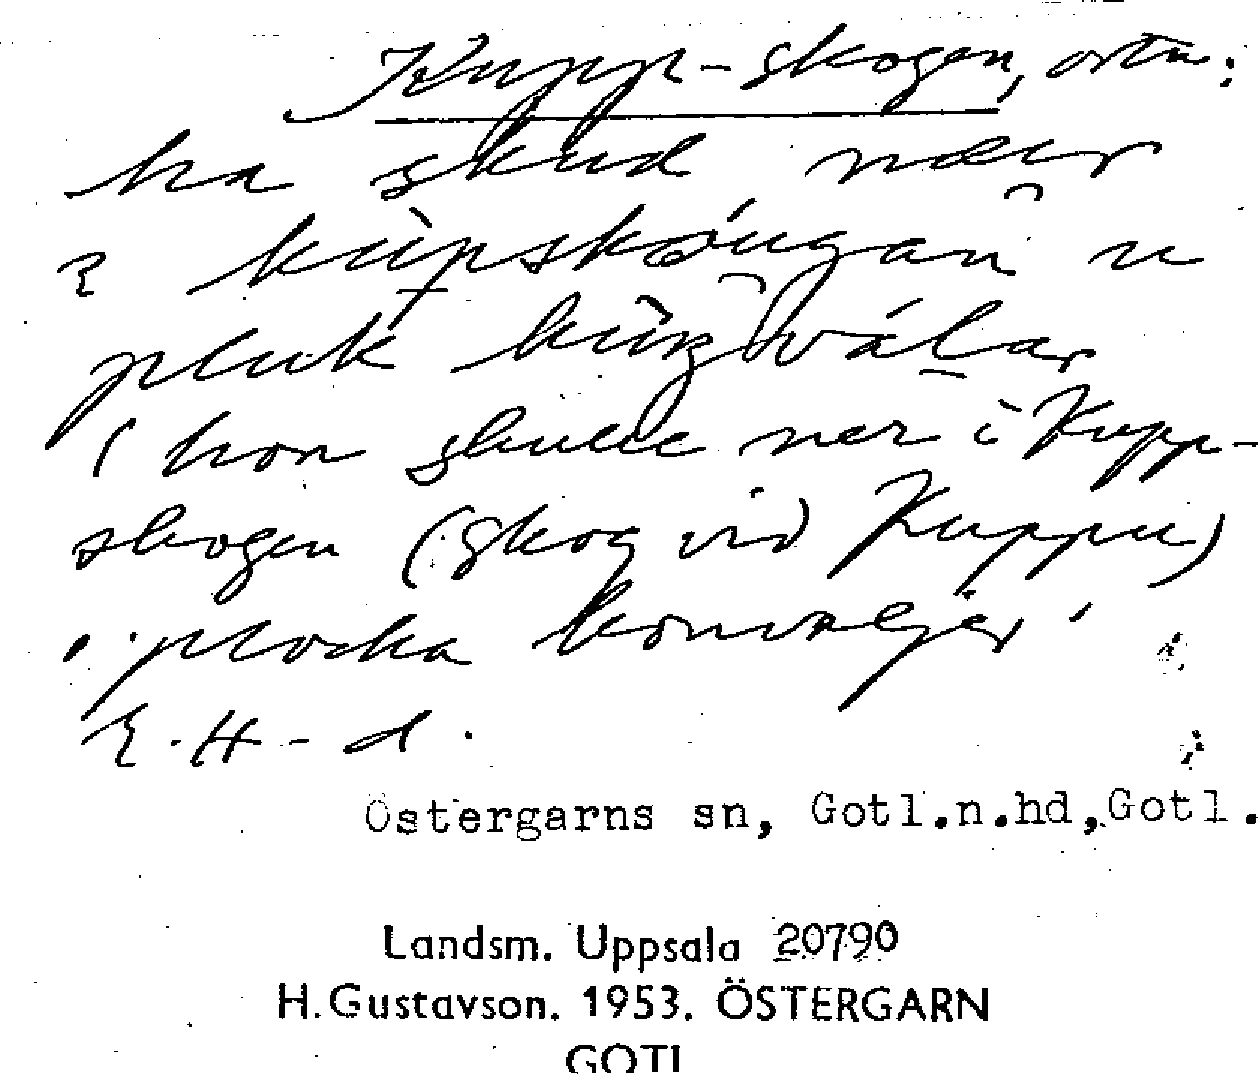 Kupp-skogen, ortn.:
ha skud næir
kùpskóugan u
pluk
(hon skulle ner i Kupp-
skogen (skog vid Kuppu)
plocka konvaljer'
E.H-d.
Östergarns sn, Gotl.n.hd, Gotl.
Landsm. Uppsala 20790
H. Gustavson. 1953. ÖSTERGARN
GOTL